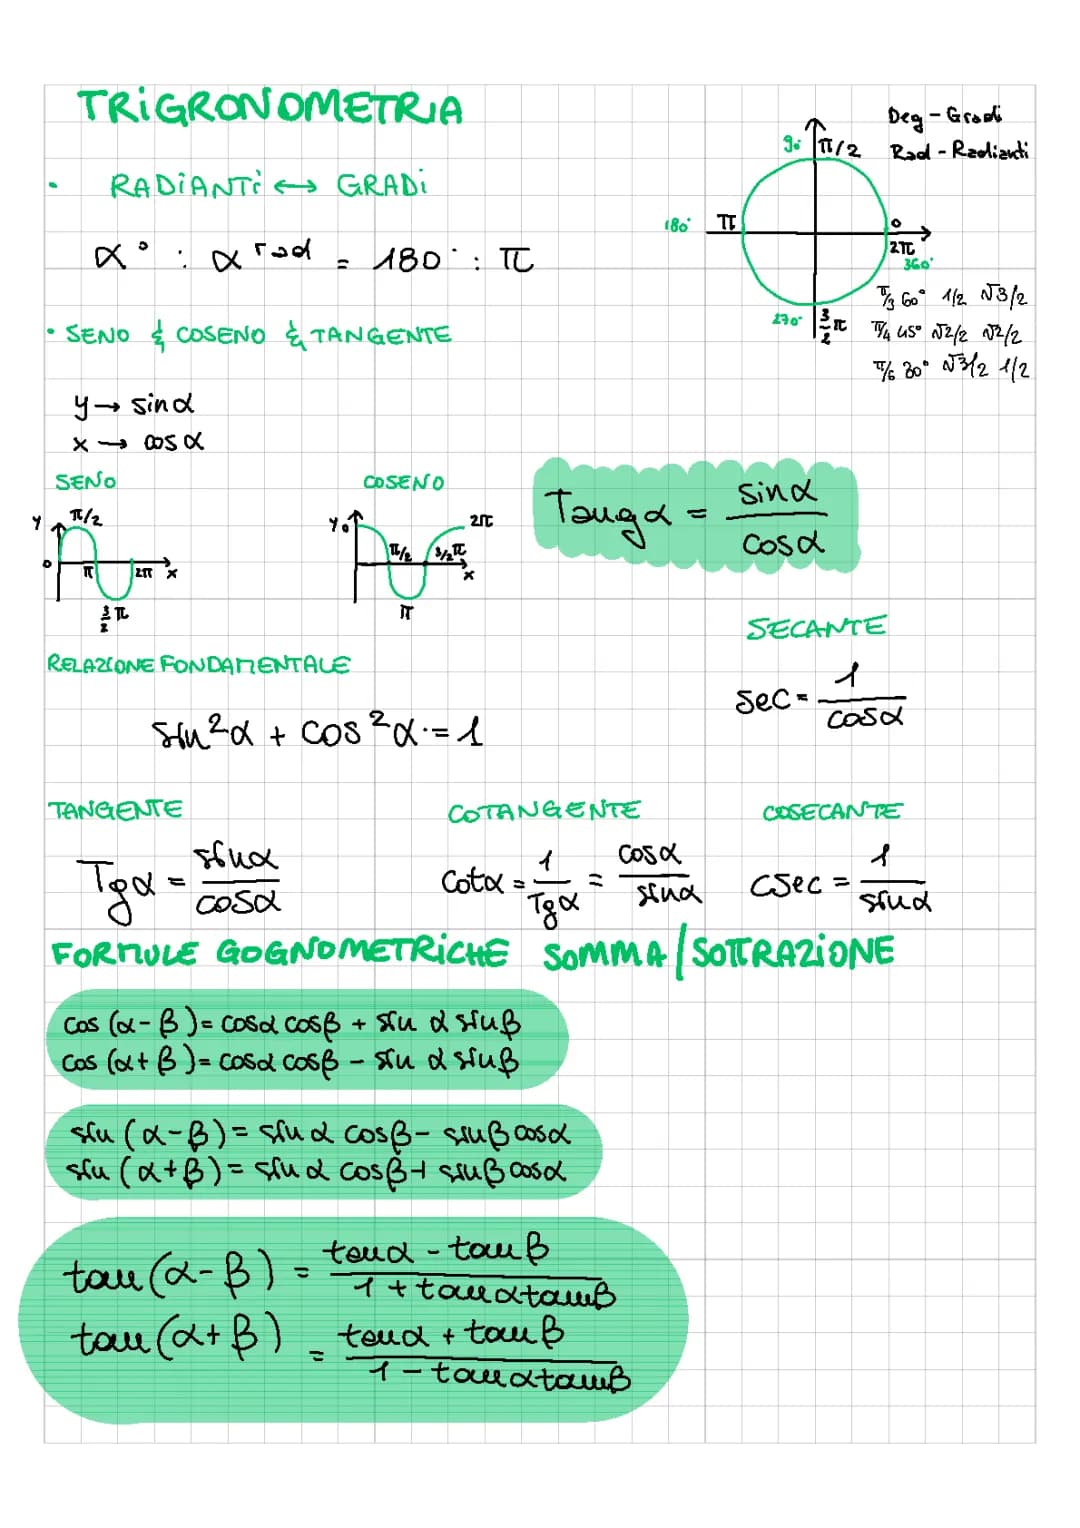 TRIGRONOMETRIA
Deg - Gradi
Rad - Radianti
90° π/2
• RADIANTI ↔ GRADI
180° π 0
2π
360°
α° : α rad = 180° : π
270° 3/2 π
π/3 60° 1/2 √3/2
π/4 45° √2/2 √2/2
π/6 30° √3/2 1/2
• SENO & COSENO & TANGENTE
y → sin α
x → cos α
SENO
y π/2
0 π 2π x
3/2 π
COSENO
y 0 2π
π/2 3/2 π
x
π
Tang α = sin α / cos α
SECANTE
sec = 1 / cos α
RELAZIONE FONDAMENTALE
sin²α + cos²α = 1
TANGENTE
Tg α = sin α / cos α
COTANGENTE
Cot α = 1 / Tg α = cos α / sin α
COSECANTE
csec = 1 / sin α
FORMULE GOGNOMETRICHE SOMMA / SOTTRAZIONE
cos (α - β) = cos α cos β + sin α sin β
cos (α + β) = cos α cos β - sin α sin β
sin (α - β) = sin α cos β - sin β cos α
sin (α + β) = sin α cos β + sin β cos α
tan (α - β) = tan α - tan β / 1 + tan α tan β
tan (α + β) = tan α + tan β / 1 - tan α tan β